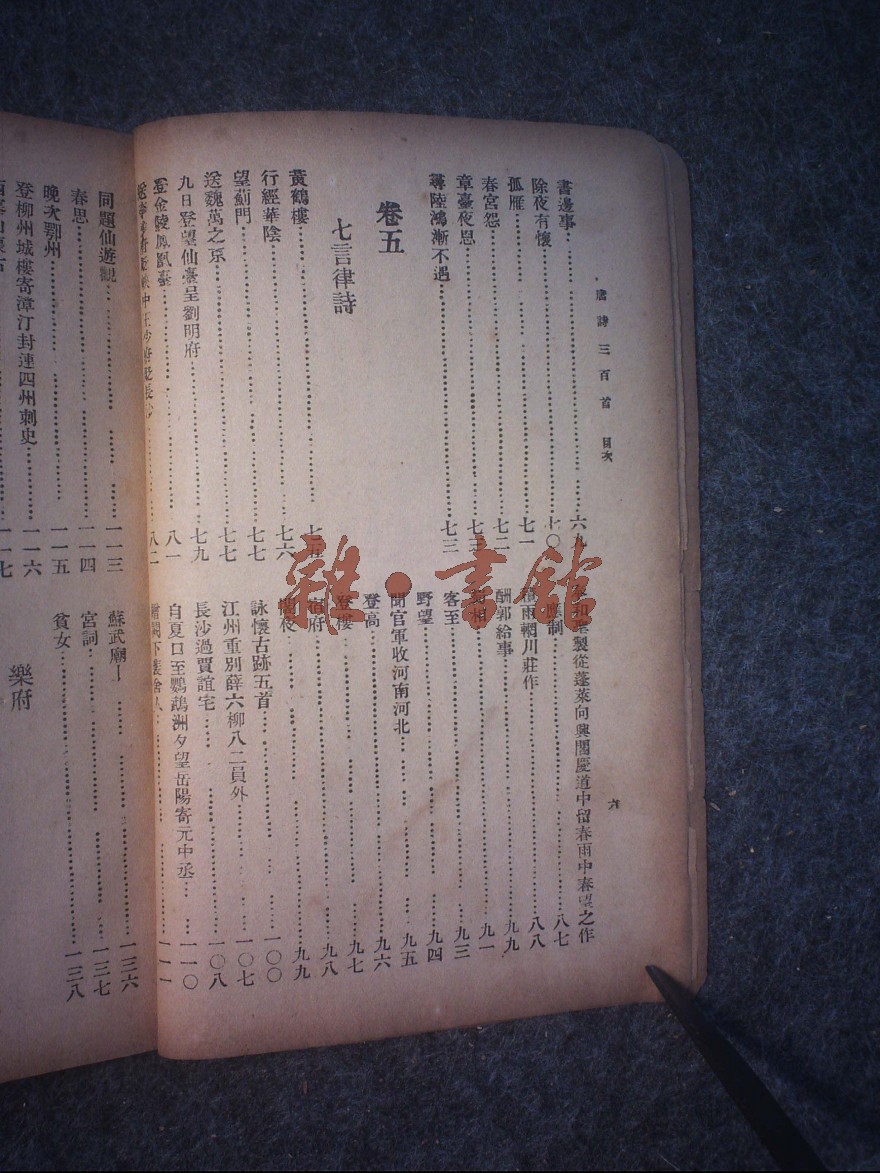 唐詩三百首 目次
六
書邊事 六九
除夜有懷 七〇
孤雁 七一
春宮怨 七二
章臺夜思 七三
尋陸鴻漸不遇 七三
卷五
七言律詩
黃鶴樓 七五
行經華陰 七六
望薊門 七七
送魏萬之京 七七
九日登望仙臺呈劉明府 七九
登金陵鳳凰臺 八一
八二
和聖製從蓬萊向興閣慶道中留春雨中春望之作
應制 八七
雨輞川莊作 八八
酬郭給事 九九
相 九一
客至 九三
野望 九四
聞官軍收河南河北 九五
登高 九六
登樓 九七
宿府 九八
閣夜 九九
詠懷古跡五首 一〇〇
江州重別薛六柳八二員外 一〇七
長沙過賈誼宅 一〇八
自夏口至鸚鵡洲夕望岳陽寄元中丞 一一〇
贈闕下裴舍人 一一一
同題仙遊觀 一一三
春思 一一四
晚次鄂州 一一五
登柳州城樓寄漳汀封連四州刺史 一一六
一一七
蘇武廟 一三六
宮詞 一三七
貧女 一三八
樂府
雜·書館